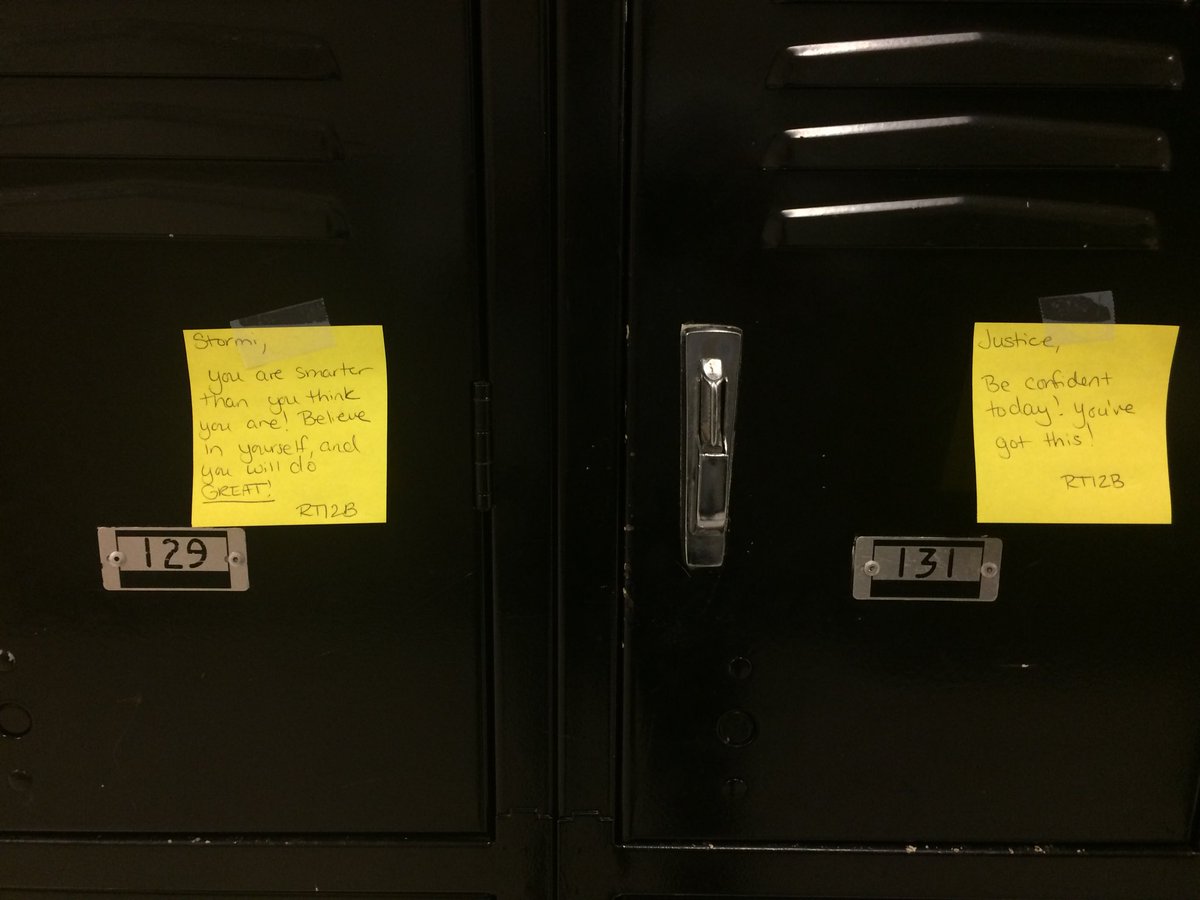 Stormi,
you are smarter
than you think
you are! Believe
in yourself, and
you will do
GREAT!
RTI2B
129
Justice,
Be confident
today! you've
got this!
RTI2B
131